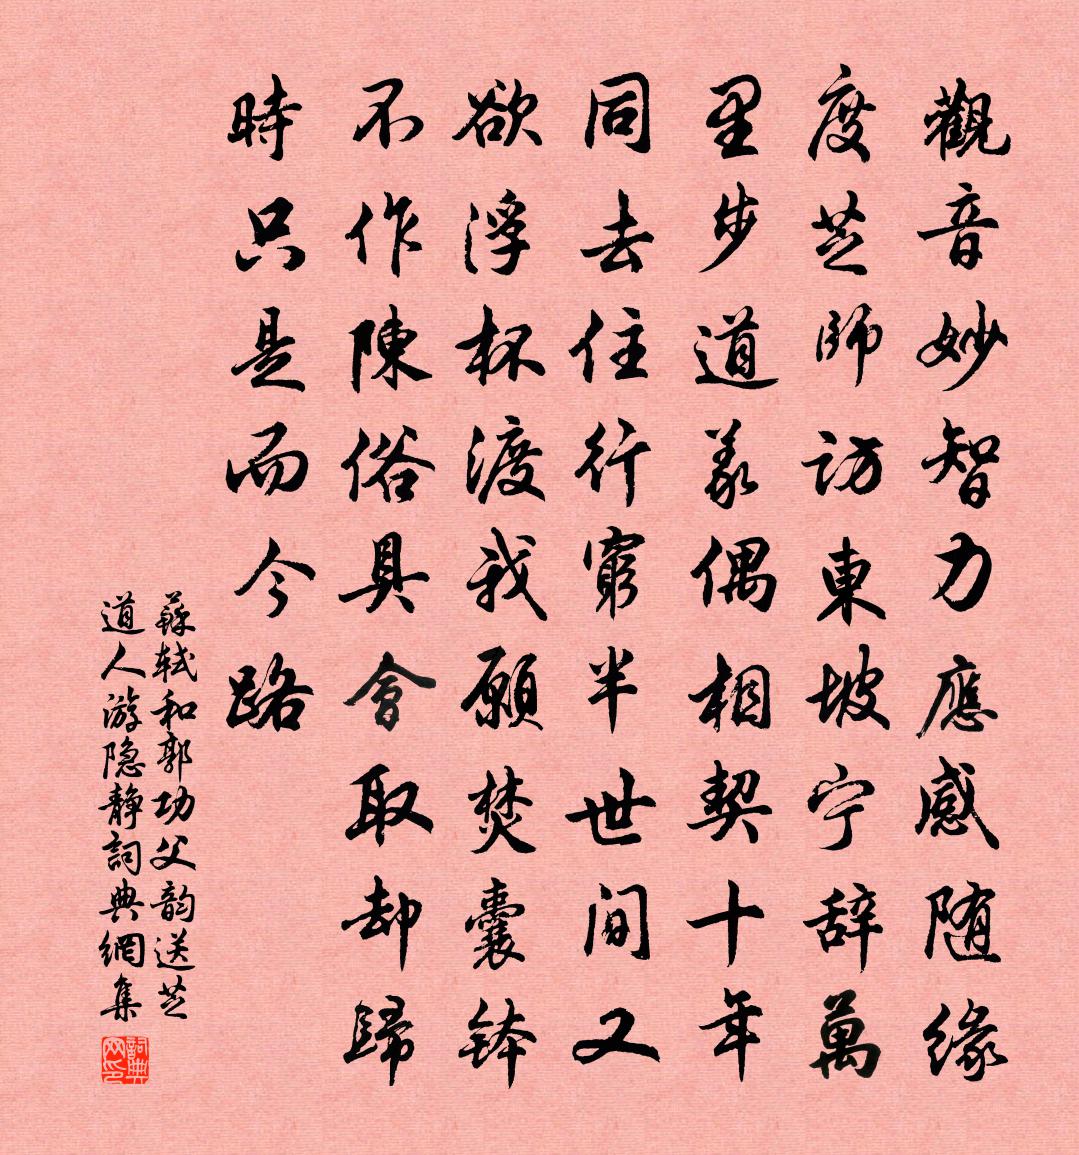 觀音妙智力應感随缘
度芝師訪東坡宁辞萬
里步道義偶相契十年
同去住行窮半世間又
欲浮杯渡我願焚囊鉢
不作陳俗具會取却歸
時只是而今路
蘇軾和郭功父韵送芝
道人游隐静詞典網集
詞典网印